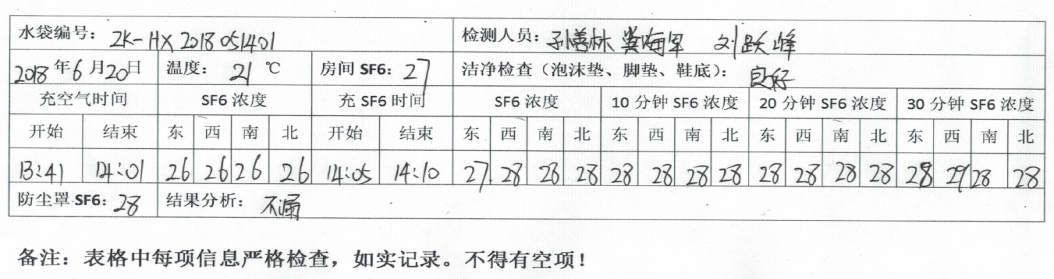 水袋编号: ZK-HX 2018051401 检测人员: 孙善林 刘跃峰
2018年6月20日 温度: 21 ℃ 房间 SF6: 27 洁净检查(泡沫垫、脚垫、鞋底): 良好
充空气时间 SF6 浓度 充 SF6 时间 SF6 浓度 10 分钟 SF6 浓度 20 分钟 SF6 浓度 30 分钟 SF6 浓度
开始 结束 东 西 南 北 开始 结束 东 西 南 北 东 西 南 北 东 西 南 北 东 西 南 北
13:41 14:01 26 26 26 26 14:05 14:10 27 28 28 28 28 28 28 28 28 28 28 28 28 29 28 28
防尘罩 SF6: 28 结果分析: 不漏
备注: 表格中每项信息严格检查,如实记录。不得有空项!